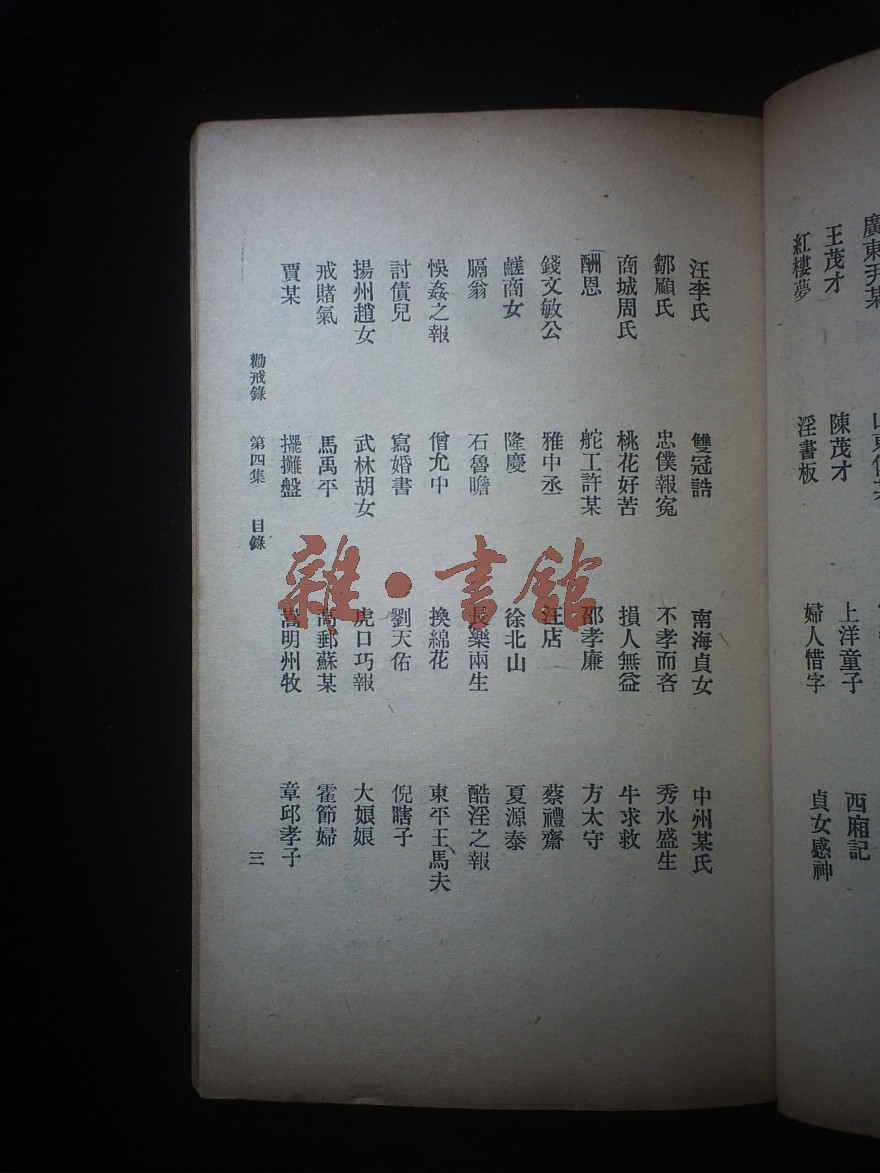 廣東尹某
王茂才　陳茂才　上洋童子　西廂記
紅樓夢　淫書板　婦人惜字　貞女感神
汪李氏　雙冠誥　南海貞女　中州某氏
鄒顧氏　忠僕報冤　不孝而吝　秀水盛生
商城周氏　桃花好苦　損人無益　牛求救
酬恩　舵工許某　邵孝廉　方太守
錢文敏公　雅中丞　汪店　蔡禮齋
鹺商女　隆慶　徐北山　夏源泰
膈翁　石魯瞻　長樂兩生　酷淫之報
悞姦之報　僧尤中　換綿花　東平王馬夫
討債兒　寫婚書　劉天佑　倪瞎子
揚州趙女　武林胡女　虎口巧報　大娘娘
戒賭氣　馬禹平　高郵蘇某　霍節婦
賈某　擺攤盤　嵩明州牧　章邱孝子
勸戒錄　第四集　目錄　三
雜·書館